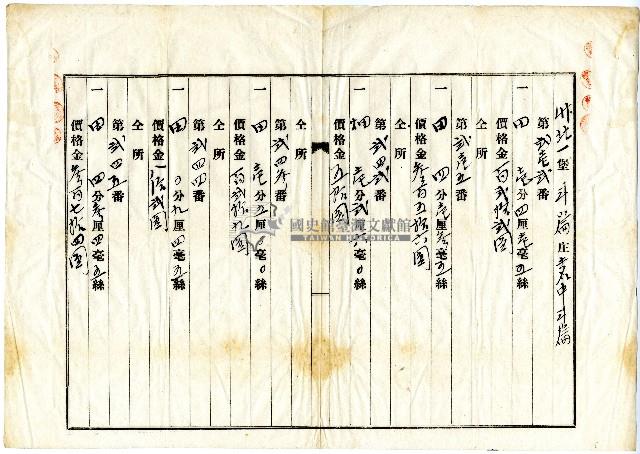 竹北一堡斗崙庄土名中斗崙
第貳壱貳番
一 田 壱分四厘壱毫五絲
價格金百貳拾貳圓
仝所
第貳壱五番
一 田 四分壱厘叁毫五絲
價格金叁百五拾六圓
仝所
第貳四貳番
一 畑 壱分貳厘 毫0絲
價格金五拾圓
仝所
第貳四叁番
一 田 壱分五厘0毫0絲
價格金百貳拾九圓
仝所
第貳四四番
一 田 0分九厘四毫五絲
價格金 拾貳圓
仝所
第貳四五番
一 田 四分叁厘四毫五絲
價格金叁百七拾四圓
國史館臺灣文獻館
TAIWAN HISTORICA